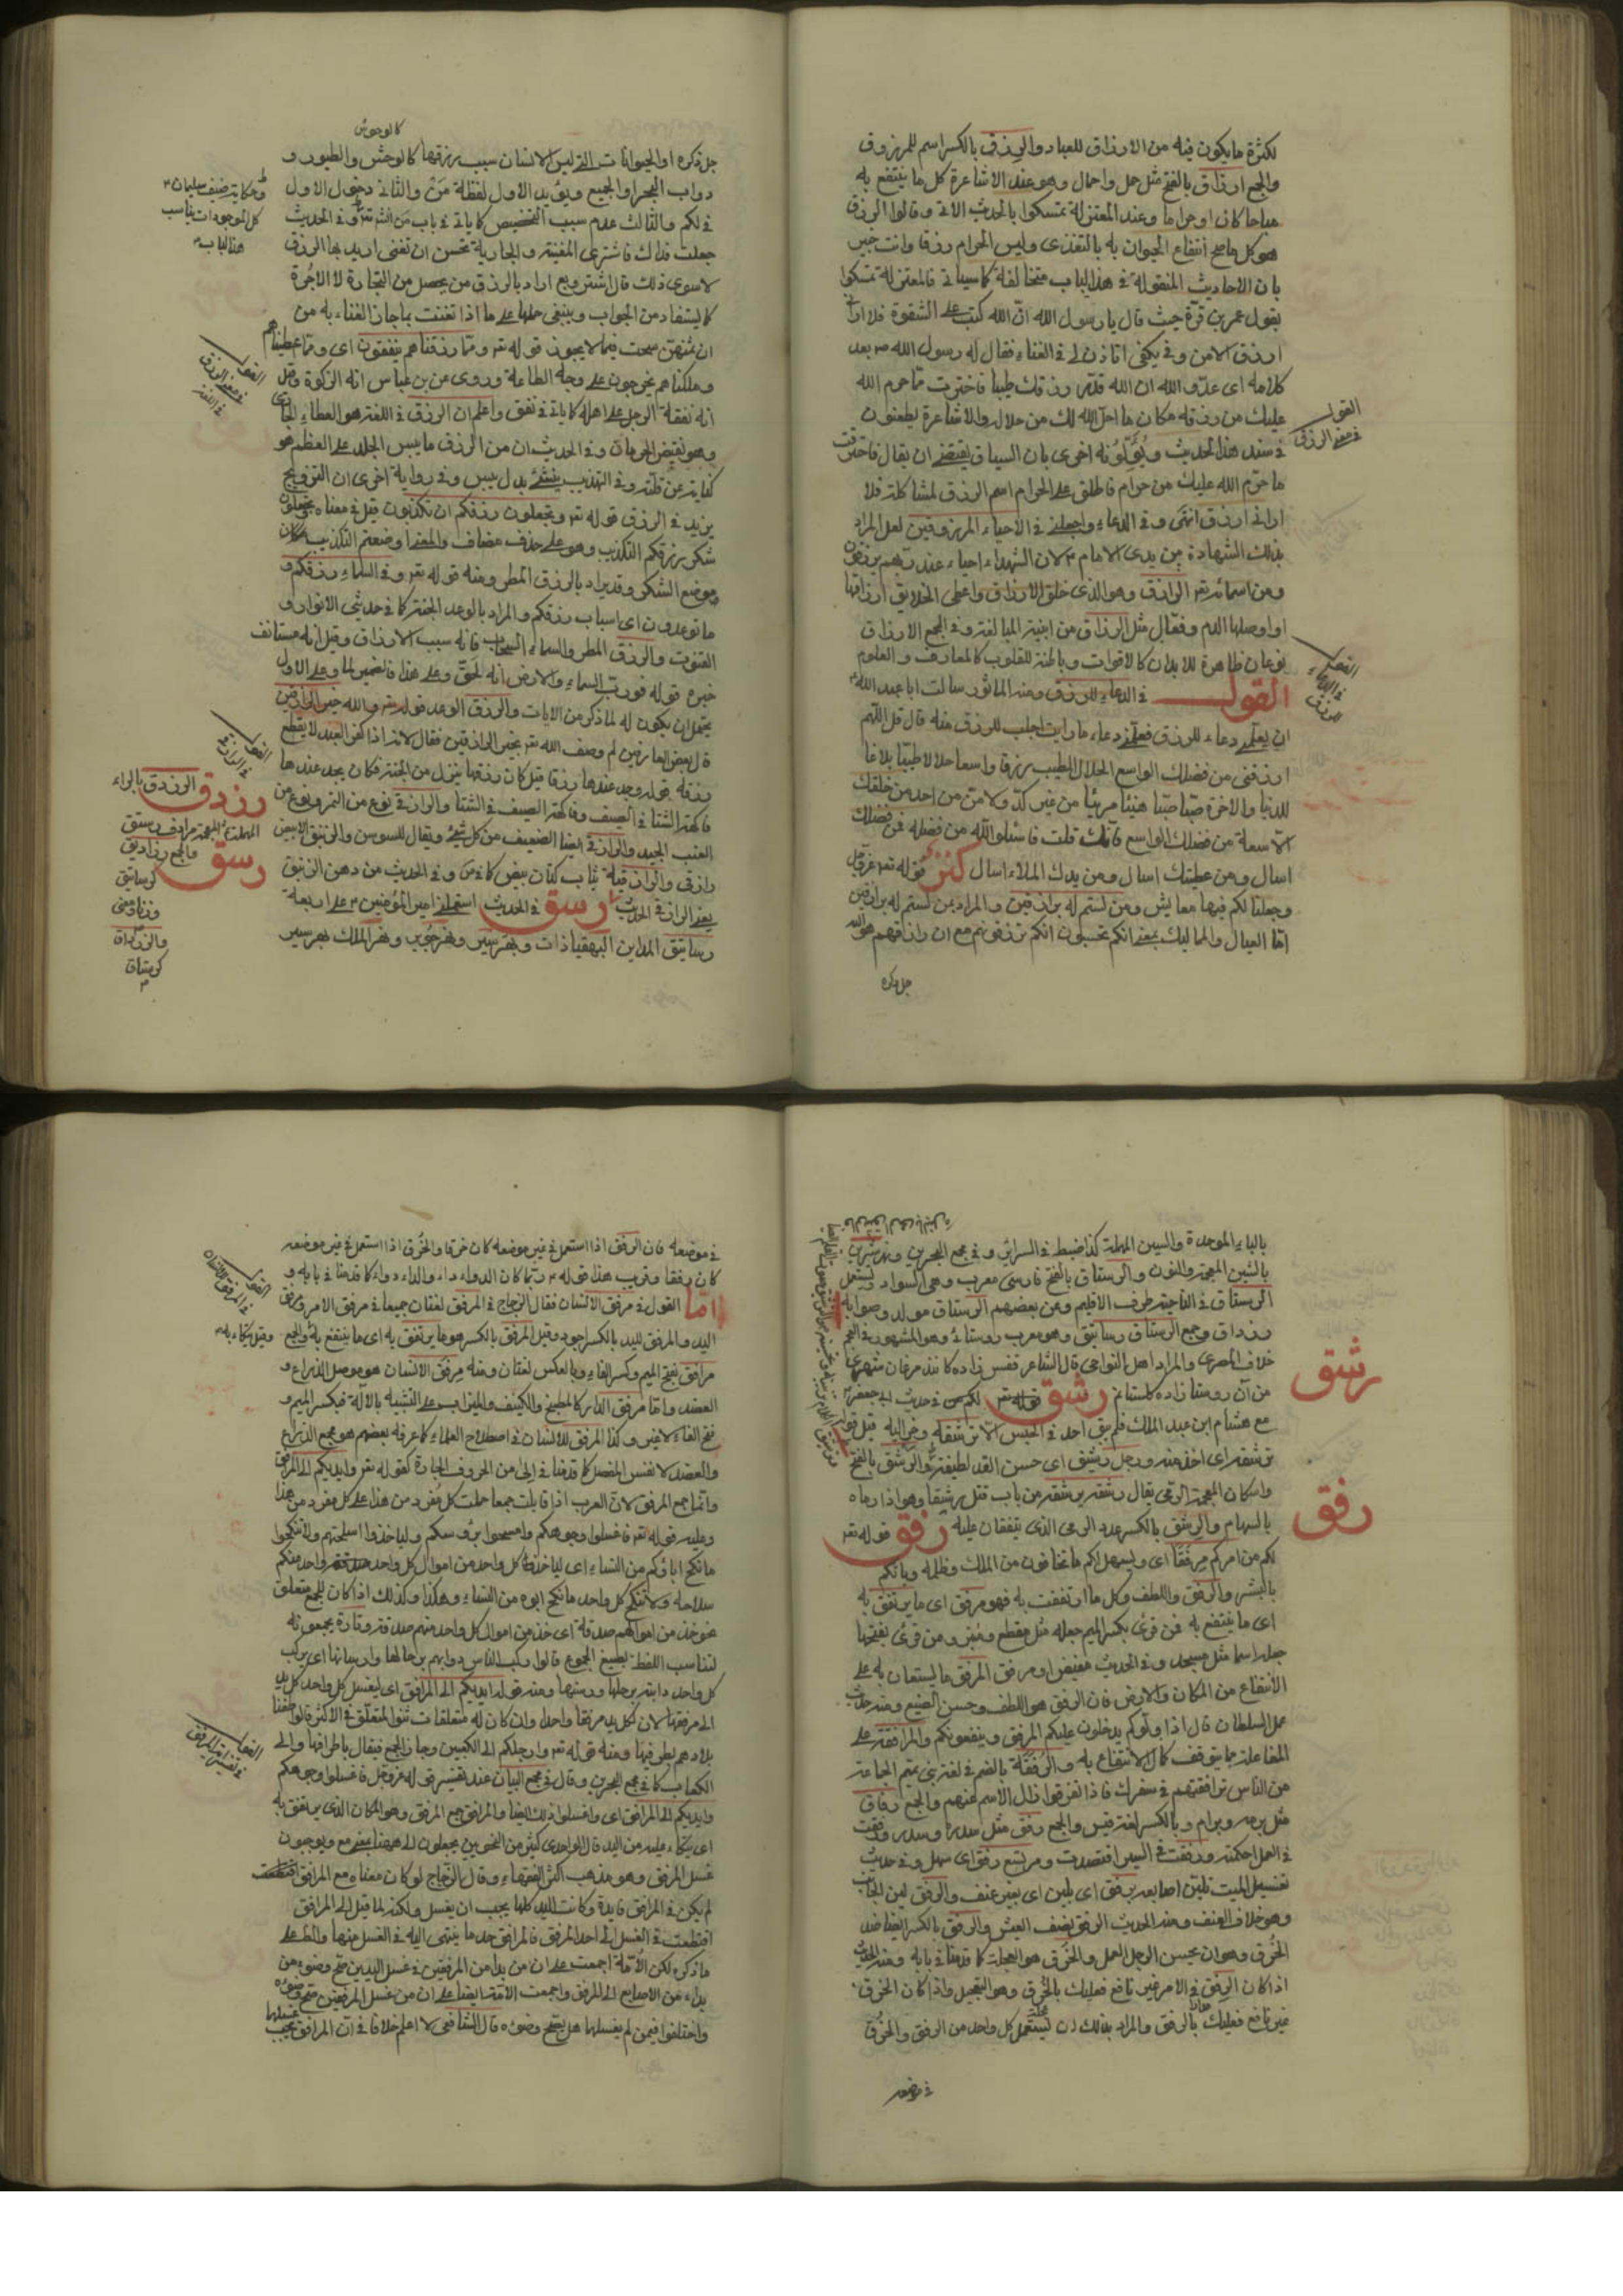 لكثرة ما يكون فيه من الارزاق للعباد والرزق بالكسر اسم للمرزوق
والجمع ارزاق بالفتح مثل حمل واحمال وهو عند الاشاعرة كل ما ينتفع به
مباحا كان او حراما وعند المعتزلة تمسكوا بالحديث الاتى وقالوا الرزق
هو كل ما صح انتفاع الحيوان به بالتغذى وليس الحرام رزقا وانت خبير
بان الاحاديث المنقولة فى هذا الباب متخالفة كما سياتى فالمعتزلة تمسكوا
بقول عمر بن قرة حيث قال يا رسول الله ان الله كتب على الشقوة فلا ارانى
ارزق الا من دفى بكفى اتاذن لى فى الغناء فقال له رسول الله ص بعد
كلامه اى عدو الله ان الله قد رزقك طيبا فاخترت ما حرم الله
عليك من رزقه مكان ما احل الله لك من حلاله والاشاعرة يطعنون
فى سند هذا الحديث ويؤولونه اخرى بان السياق يقتضى ان يقال فاخترت
ما حرم الله عليك من حرام فاطلق على الحرام اسم الرزق لمشاكلة فلا
ارانى ارزق انتهى وفى الدعاء واجعلنى فى الاحياء المرزوقين لعل المراد
بذلك الشهادة بين يدى الامام ع لان الشهداء احياء عند ربهم يرزقون
ومن اسمائه تعالى الرازق وهو الذى خلق الارزاق واعطى الخلايق ارزاقها
او اوصلها اليهم وفعال مثل الرزاق من ابنية المبالغة وفى المجمع الارزاق
نوعان ظاهرة للابدان كالاقوات وباطنة للقلوب كالمعارف والعلوم
القول فى الدعاء للرزق ومنه الماثور سالت ابا عبد الله ع
ان يعلمنى دعاء للرزق فعلمنى دعاء ما رايت اجلب للرزق منه قال قل اللهم
ارزقنى من فضلك الواسع الحلال الطيب رزقا واسعا حلالا طيبا بلاغا
للدنيا والاخرة صبا صبا هنيئا مريئا من غير كد ولا من من احد من خلقك
الا سعة من فضلك الواسع فانك قلت فاسئلوا الله من فضله فمن فضلك
اسال ومن عطيتك اسال ومن يدك الملاء اسال كنز قوله تعالى عز وجل
وجعلنا لكم فيها معايش ومن لستم له برازقين والمراد بمن لستم له برازقين
اما العيال والمماليك بمعنى انكم تحسبون انكم ترزقونهم مع ان رازقهم هو الله
جل ذكره
القول فى معنى الرزق
القول فى الدعاء للرزق
كالوحوش
جل ذكره او الحيوانات التى ليس الانسان سبب رزقها كالوحش والطيور و
دواب البحر او الجميع ويؤيد الاول لفظة من والثانى دخول الاول
فى لكم والثالث عدم سبب التخصيص كما ياتى فى باب من انش تعالى وفى الحديث
جعلت فداك فاشترى المغنية والجارية تحسن ان تغنى اريد بها الرزق
لا سوى ذلك قال اشتر وبع اراد بالرزق من يحصل من التجارة لا الاجرة
كما يستفاد من الجواب وينبغى حملها على ما اذا تغنت بما جاز الغناء به من
ان ثمنهن سحت فيما لا يجوز قوله تعالى ومما رزقناهم ينفقون اى ومما اعطيناهم
وملكناهم يخرجون على وجه الطاعة وروى عن بن عباس انه الزكوة وقيل
انه نفقة الرجل على اهله كما ياتى فى نفق واعلم ان الرزق فى اللغة هو العطاء الجارى
وهو نقيض الحرمان وفى الحديث ان من الرزق ما ييبس الجلد على العظم هو
كناية عن قلته وفى التهذيب ينشئ بدل ييبس وفى رواية اخرى ان التزويج
يزيد فى الرزق قوله تعالى وتجعلون رزقكم ان تكذبون قيل فى معناه تجعلون
شكر رزقكم التكذيب وهو على حذف مضاف والمعنى اوضعتم التكذيب مكان
موضع الشكر وقد يراد بالرزق المطر ومنه قوله تعالى وفى السماء رزقكم و
ما توعدون اى اسباب رزقكم والمراد بالوعد الجنة كما فى حديثى الانوار و
القنوت والرزق المطر والسماء السحاب فانه سبب الارزاق وقيل انه مستانف
خبره قوله فورب السماء والارض انه لحق وعلى هذا فالضمير لما وعلى الاول
يحتمل ان يكون له لما ذكر من الايات والرزق الوعد قوله تعالى والله خير الرازقين
قال بعض العارفين لم وصف الله تعالى بخير الرازقين فقال لانه اذا كفر العبد لا يقطع
رزقه قوله وجد عندها رزقا قيل كان رزقها ينزل من الجنة فكان يجد عندها
فاكهة الشتا فى الصيف وفاكهة الصيف فى الشتا والرازقى نوع من التمر ونوع من
العنب الجيد والرازقى ايضا الضعيف من كل شئ ويقال للسوسن والزنبق الابيض
رازقى والرازقية ثياب كتان بيض كما فى س وفى الحديث من دهن الزنبق
يعنى الرازقى الحديث رستق فى الحديث استعملنى امير المؤمنين ع على اربعة
رساتيق المداين البهقياذات وبهر سير ونهر جوير ونهر الملك بهرسير
وحكاية ضيف سليمان ع
كل الموجودات يناسب
هذا الباب
القول فى معنى الرزق فى اللغة
القول فى الرازقى
رزدق الرزدق بالراء
المهملة المعجمة مرادف رستق
والجمع رزاديق
كرساتيق
وزنا ومعنى
والرزداق
كرستاق
رستق
بالباء الموحدة والسين المهملة كذا ضبط فى السرائر وفى مجمع البحرين ونهر شيرين
بالشين المعجمة والنون والرستاق بالفتح فارسى معرب وهى السواد ويستعمل
الرستاق فى الناحية طرف الاقليم وعن بعضهم الرستاق مولد وصوابه
رزداق وجمع الرستاق رساتيق وهو معرب روستا وهو المشهور فى العجم
خلاف المصرى والمراد اهل النواحى قال الشاعر قفس زاده كانند مرغان شهرى
من آن روستا زاده كلستانم رشق قوله تعالى لكم من فى حديث ابى جعفر ع
مع هشام ابن عبد الملك فلم يبق احد فى الحبس الا ترشفه وحن اليه قيل قوله
ترشفه اى اخذ منه ورجل رشيق اى حسن القد لطيفه والرشق بالفتح
واسكان المعجمة الرمى يقال رشقه يرشقه من باب قتل يرشقا وهو اذا رماه
بالسهام والرشق بالكسر عدد الرمى الذى يتفقان عليه رفق قوله تعالى
لكم من امركم مرفقا اى ويسهل لكم ما تخافون من الملك وظلمه وياتكم
باليسر والرفق واللطف وكل ما ارتفقت به فهو مرفق اى ما يرتفق به
اى ما ينتفع به فمن قرئ بكسر الميم جعله مثل مقطع ومبزر ومن قرئ بفتحها
جعله اسما مثل مسجد وفى الحديث مغيض او مرفق المرفق ما يستعان به على
الانتفاع من المكان والارض فان الرفق هو اللطف وحسن الصنيع ومنه حديث
عمل السلطان قال اذا ولوكم يدخلون عليكم المرفق وينفعونكم والمرافقة على
المفاعلة مما يتوقف كمال الانتفاع به والرفقة بالضم فى لغة بنى تميم الجماعة
من الناس ترافقهم فى سفرك فاذا تفرقوا زال الاسم عنهم والجمع رفاق
مثل برمه وبرام وبالكسر لغة قيس والجمع رفق مثل سدرة وسدر ورفقت
فى العمل احكمته ورفقت فى السير اقتصدت ومرتع رفق اى سهل وفى حديث
تغسيل الميت تلين اصابعه برفق اى بلين اى بغير عنف والرفق لين الجانب
وهو خلاف العنف ومنه الحديث الرفق نصف العيش والرفق بالكسر ايضا ضد
الخرق وهو ان يحسن الرجل العمل والخرق هو العجلة كما قدمنا فى بابه ومنه الحديث
اذا كان الرفق فى الامر غير نافع فعليك بالخرق وهو التعجيل واذا كان الخرق
غير نافع فعليك بالرفق والمراد بذلك ان يستعمل كل واحد من الرفق والخرق
فى موضعه
رشق
رفق
فى موضعه فان الرفق اذا استعمل فى غير موضعه كان خرقا والخرق اذا استعمل فى غير موضعه
كان رفقا وقريب هذا قوله ع ربما كان الدواء داء والداء دواء كما قدمنا فى بابه و
اما القول فى مرفق الانسان فقال الزجاج فى المرفق لغتان جميعا فى مرفق الامر ومرفق
اليد والمرفق لليد بالكسر اجود وقيل المرفق بالكسر هو ما يرتفق به اى ما ينتفع به والجمع
مرافق بفتح الميم وكسر الفاء وبالعكس لغتان ومنه مرفق الانسان هو موصل الذراع و
العضد واما مرفق الدار كالمطبخ والكنيف والميزاب على التشبيه بالآلة فبكسر الميم و
فتح الفاء لا غير وكذا المرفق للانسان فى اصطلاح العلماء كما عرفه بعضهم هو مجمع الذراع
والعضد لا نفس المفصل كما قدمنا فى الى من الحروف الجارة كقوله تعالى وايديكم الى المرافق
وانما جمع المرفق لان العرب اذا قابلت جمعا حملت كل مفرد من هذا على كل مفرد من هذا
وعليه قوله تعالى فاغسلوا وجوهكم وامسحوا برؤسكم ولياخذوا اسلحتهم ولا تنكحوا
ما نكح اباؤكم من النساء اى لياخذ كل واحد من اموال كل واحد واحد منكم
سلاحه ولا تنكح كل واحد ما نكح ابوه من النساء وهكذا وكذلك اذا كان للجمع متعلق
نحو خذ من اموالهم صدقة اى خذ من اموال كل واحد منهم صدقة وتارة يجمعونه
لتناسب اللفظ بصيغ الجموع قالوا ركب الناس دوابهم برحالها وارسانها اى يركب
كل واحد دابته برحلها ورسنها ومنه قوله ايديكم الى المرافق اى ليغسل كل واحد كل يد
الى مرفقها لان لكل يد مرفقا واحدا وان كان له متعلقات ثنوا المتعلق فى الاكثر قالوا طفنا
بلادهم بطرفيها ومنه قوله تعالى وارجلكم الى الكعبين وجاز الجمع فيقال باطرافها والى
الكعاب كما فى مجمع البحرين وقال فى مجمع البيان عند تفسير قوله عز وجل فاغسلوا وجوهكم
وايديكم الى المرافق اى واغسلوا ذلك ايضا والمرافق جمع المرفق وهو المكان الذى يرتفق به
اى يتكاء عليه من اليد قال الواحدى كثير من النحويين يجعلون الى ههنا بمعنى مع ويوجبون
غسل المرفق وهو مذهب اكثر الفقهاء وقال الزجاج لو كان معناه مع المرافق
لم يكن فى المرافق فايدة وكانت اليد كلها يجب ان يغسل ولكنه لما قيل الى المرافق
اقتطعت فى الغسل الى احد المرفق فالمرافق حد ما ينتهى اليه فى الغسل منها والظ على
ما ذكره لكن الامة اجمعت على ان من بدا من المرفقين فى غسل اليدين صح وضوءه من
بداء من الاصابع الى المرفق واجمعت الامة ايضا على ان من غسل المرفقين صح وضوءه
واختلفوا فيمن لم يغسلها هل يصح وضوءه قال الشافعى لا اعلم خلافا فى ان المرافق يجب غسلها
القول فى المرفق للانسان
وقيل يتكاء به
القول فى تفسير اية المرفق